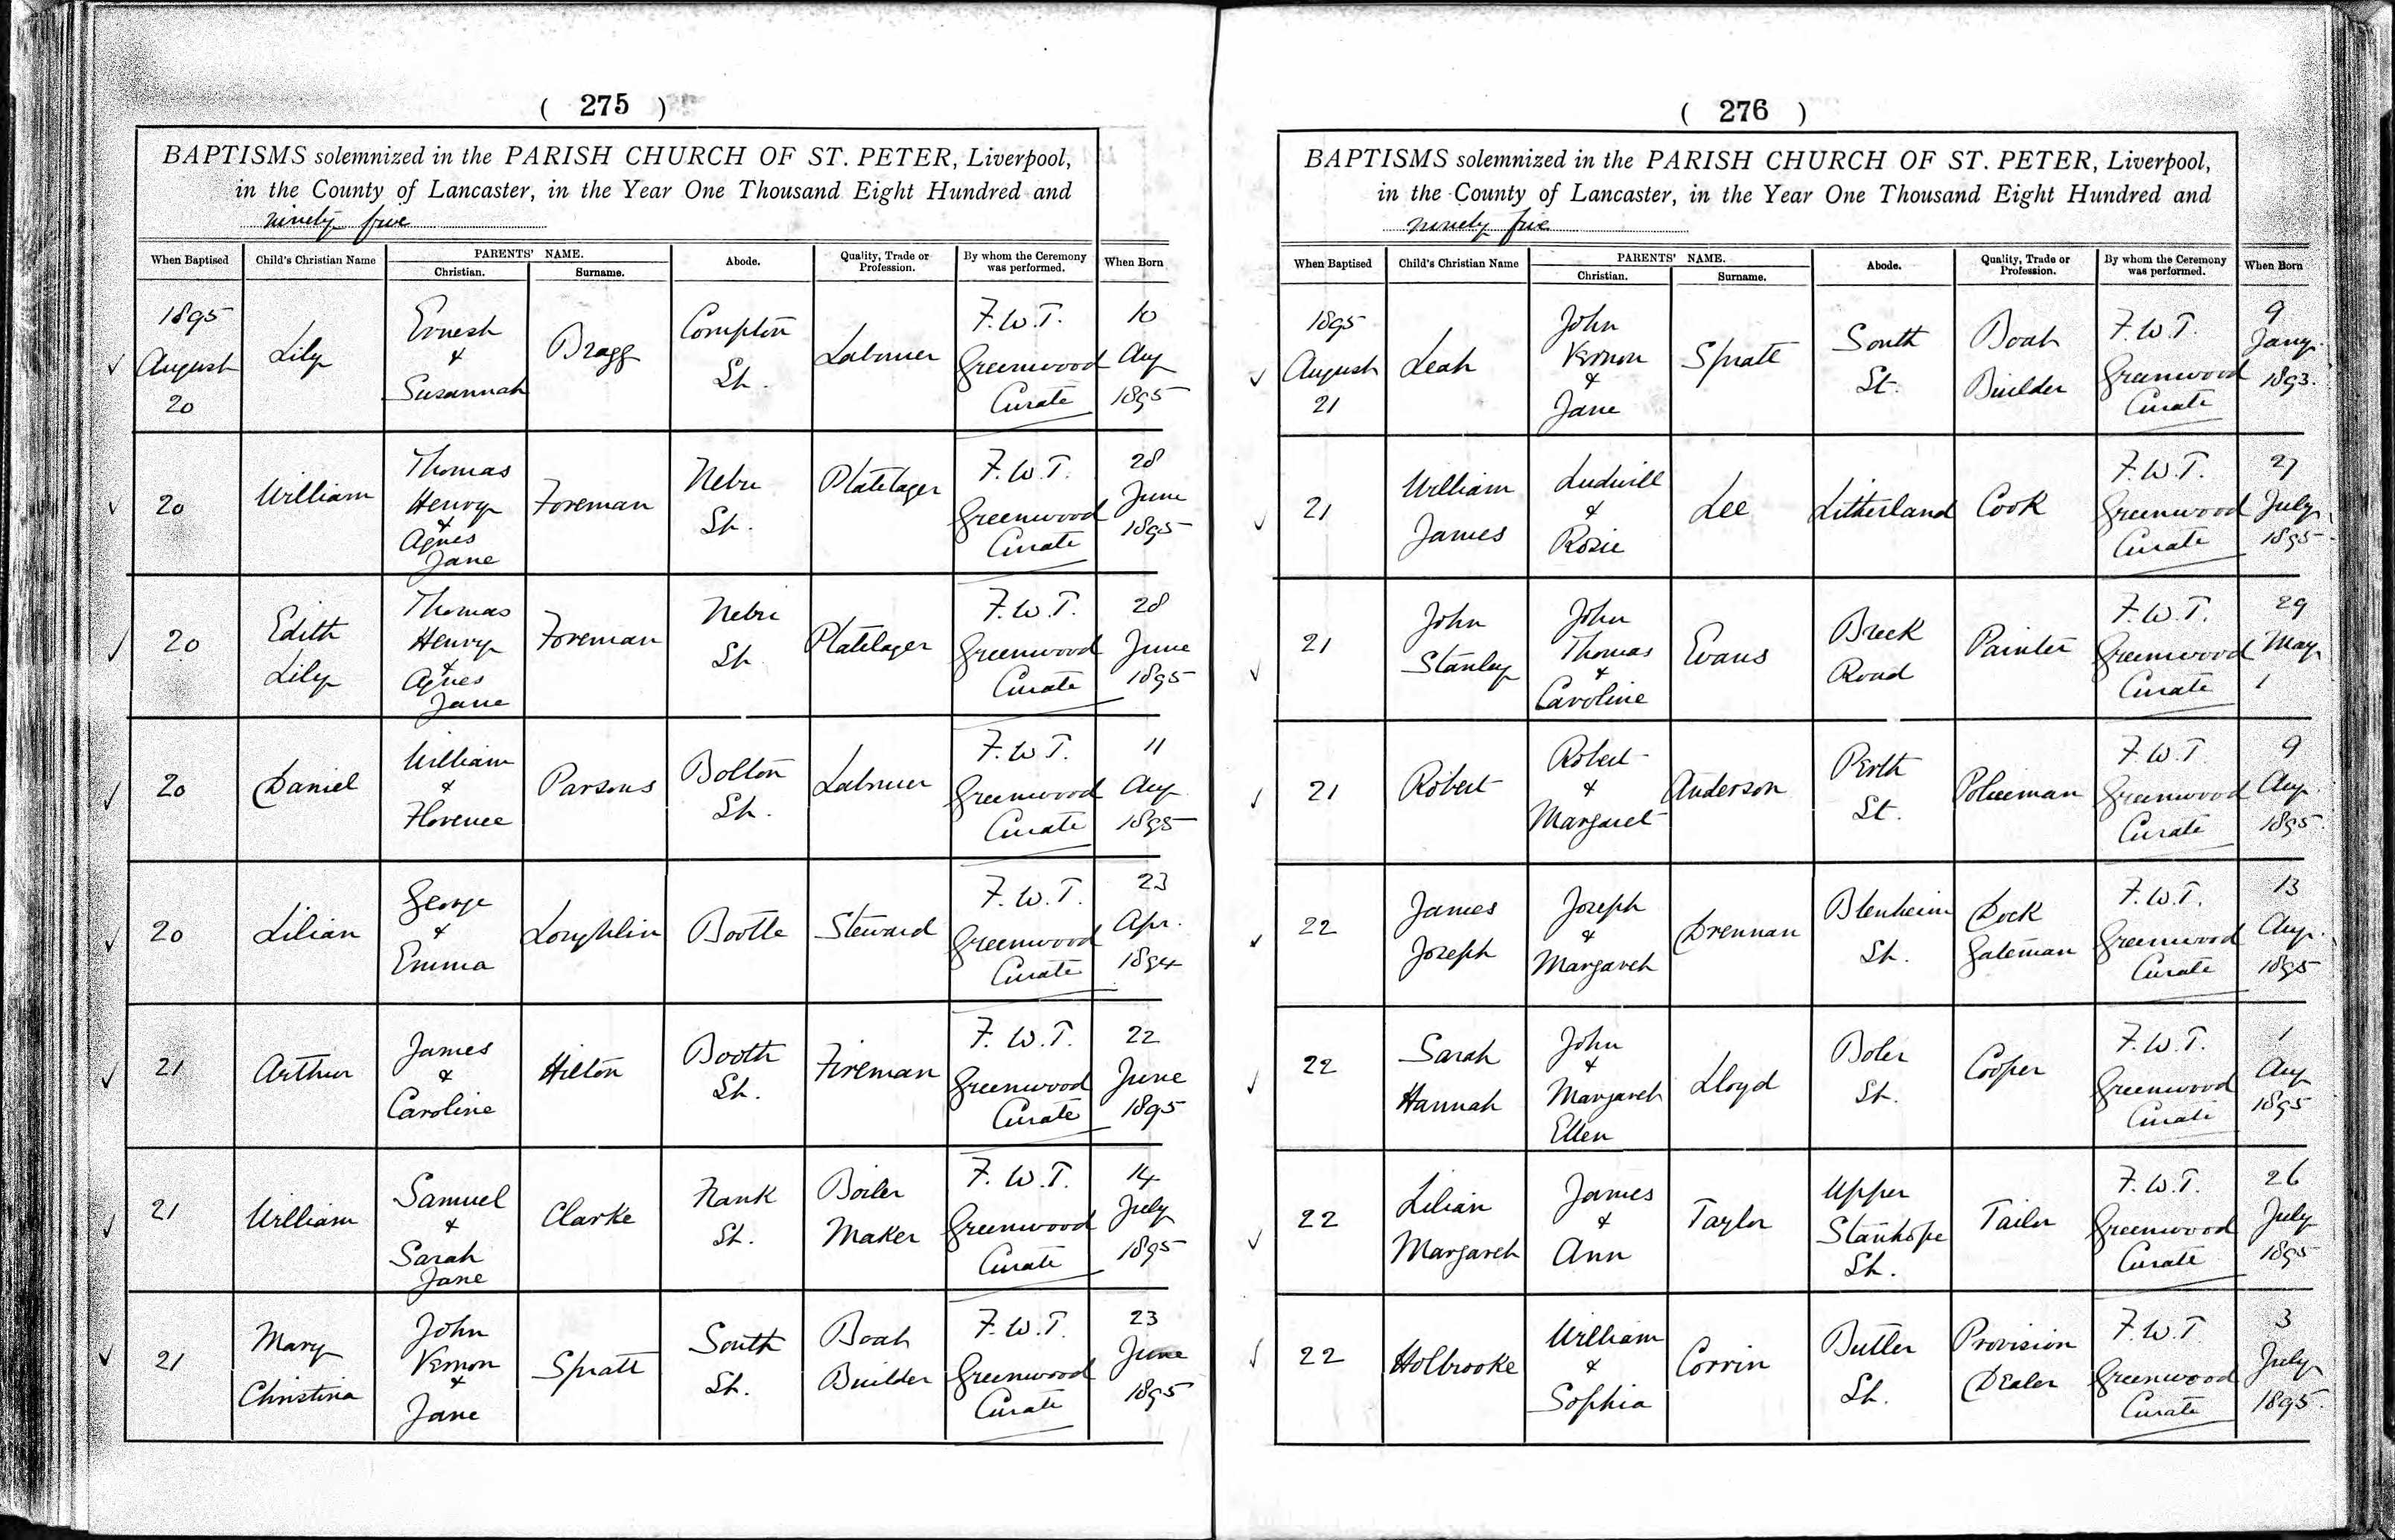 ( 275 )
BAPTISMS solemnized in the PARISH CHURCH OF ST. PETER, Liverpool,
in the County of Lancaster, in the Year One Thousand Eight Hundred and
ninety five
When Baptised Child's Christian Name PARENTS' NAME. Christian. Surname. Abode. Quality, Trade or Profession. By whom the Ceremony was performed. When Born
1895 August 20 Lily Ernest & Susannah Bragg Compton St. Labourer F. W. T. Greenwood Curate 10 Aug 1895
20 William Thomas Henry & Agnes Jane Foreman St. Platelayer F. W. T. Greenwood Curate 28 June 1895
20 Edith Lily Thomas Henry & Agnes Jane Foreman St Platelayer F. W. T. Greenwood Curate 28 June 1895
20 Daniel William & Florence Parsons Bolton St. Labourer F. W. T. Greenwood Curate 11 Aug 1895
20 Lilian George & Emma Loughlin Bootle Steward F. W. T. Greenwood Curate 23 Apr. 1894
21 Arthur James & Caroline Hilton Booth St. Fireman F. W. T. Greenwood Curate 22 June 1895
21 William Samuel & Sarah Jane Clarke Frank St. Boiler Maker F. W. T. Greenwood Curate 14 July 1895
21 Mary Christina John Vernon & Jane Spratt South St. Boat Builder F. W. T. Greenwood Curate 23 June 1895
( 276 )
BAPTISMS solemnized in the PARISH CHURCH OF ST. PETER, Liverpool,
in the County of Lancaster, in the Year One Thousand Eight Hundred and
ninety five
When Baptised Child's Christian Name PARENTS' NAME. Christian. Surname. Abode. Quality, Trade or Profession. By whom the Ceremony was performed. When Born
1895 August 21 Leah John Vernon & Jane Spratt South St. Boat Builder F. W. T. Greenwood Curate 9 Jany. 1893.
21 William James & Rosie Lee Litherland Cook F. W. T. Greenwood Curate 27 July 1895
21 John Stanley John Thomas & Caroline Evans Breck Road Painter F. W. T. Greenwood Curate 29 May 1
21 Robert Robert & Margaret Anderson Perth St. Policeman F. W. T. Greenwood Curate 9 Aug. 1895
22 James Joseph Joseph & Margaret Drennan Blenheim St. Dock Gateman F. W. T. Greenwood Curate 13 Aug. 1895
22 Sarah Hannah John & Margaret Ellen Lloyd Boler St. Cooper F. W. T. Greenwood Curate 1 Aug 1895
22 Lilian Margaret James & Ann Taylor Upper Stanhope St. Tailor F. W. T. Greenwood Curate 26 July 1895
22 Holbrooke William & Sophia Corrin Butler St. Provision Dealer F. W. T. Greenwood Curate 3 July 1895.